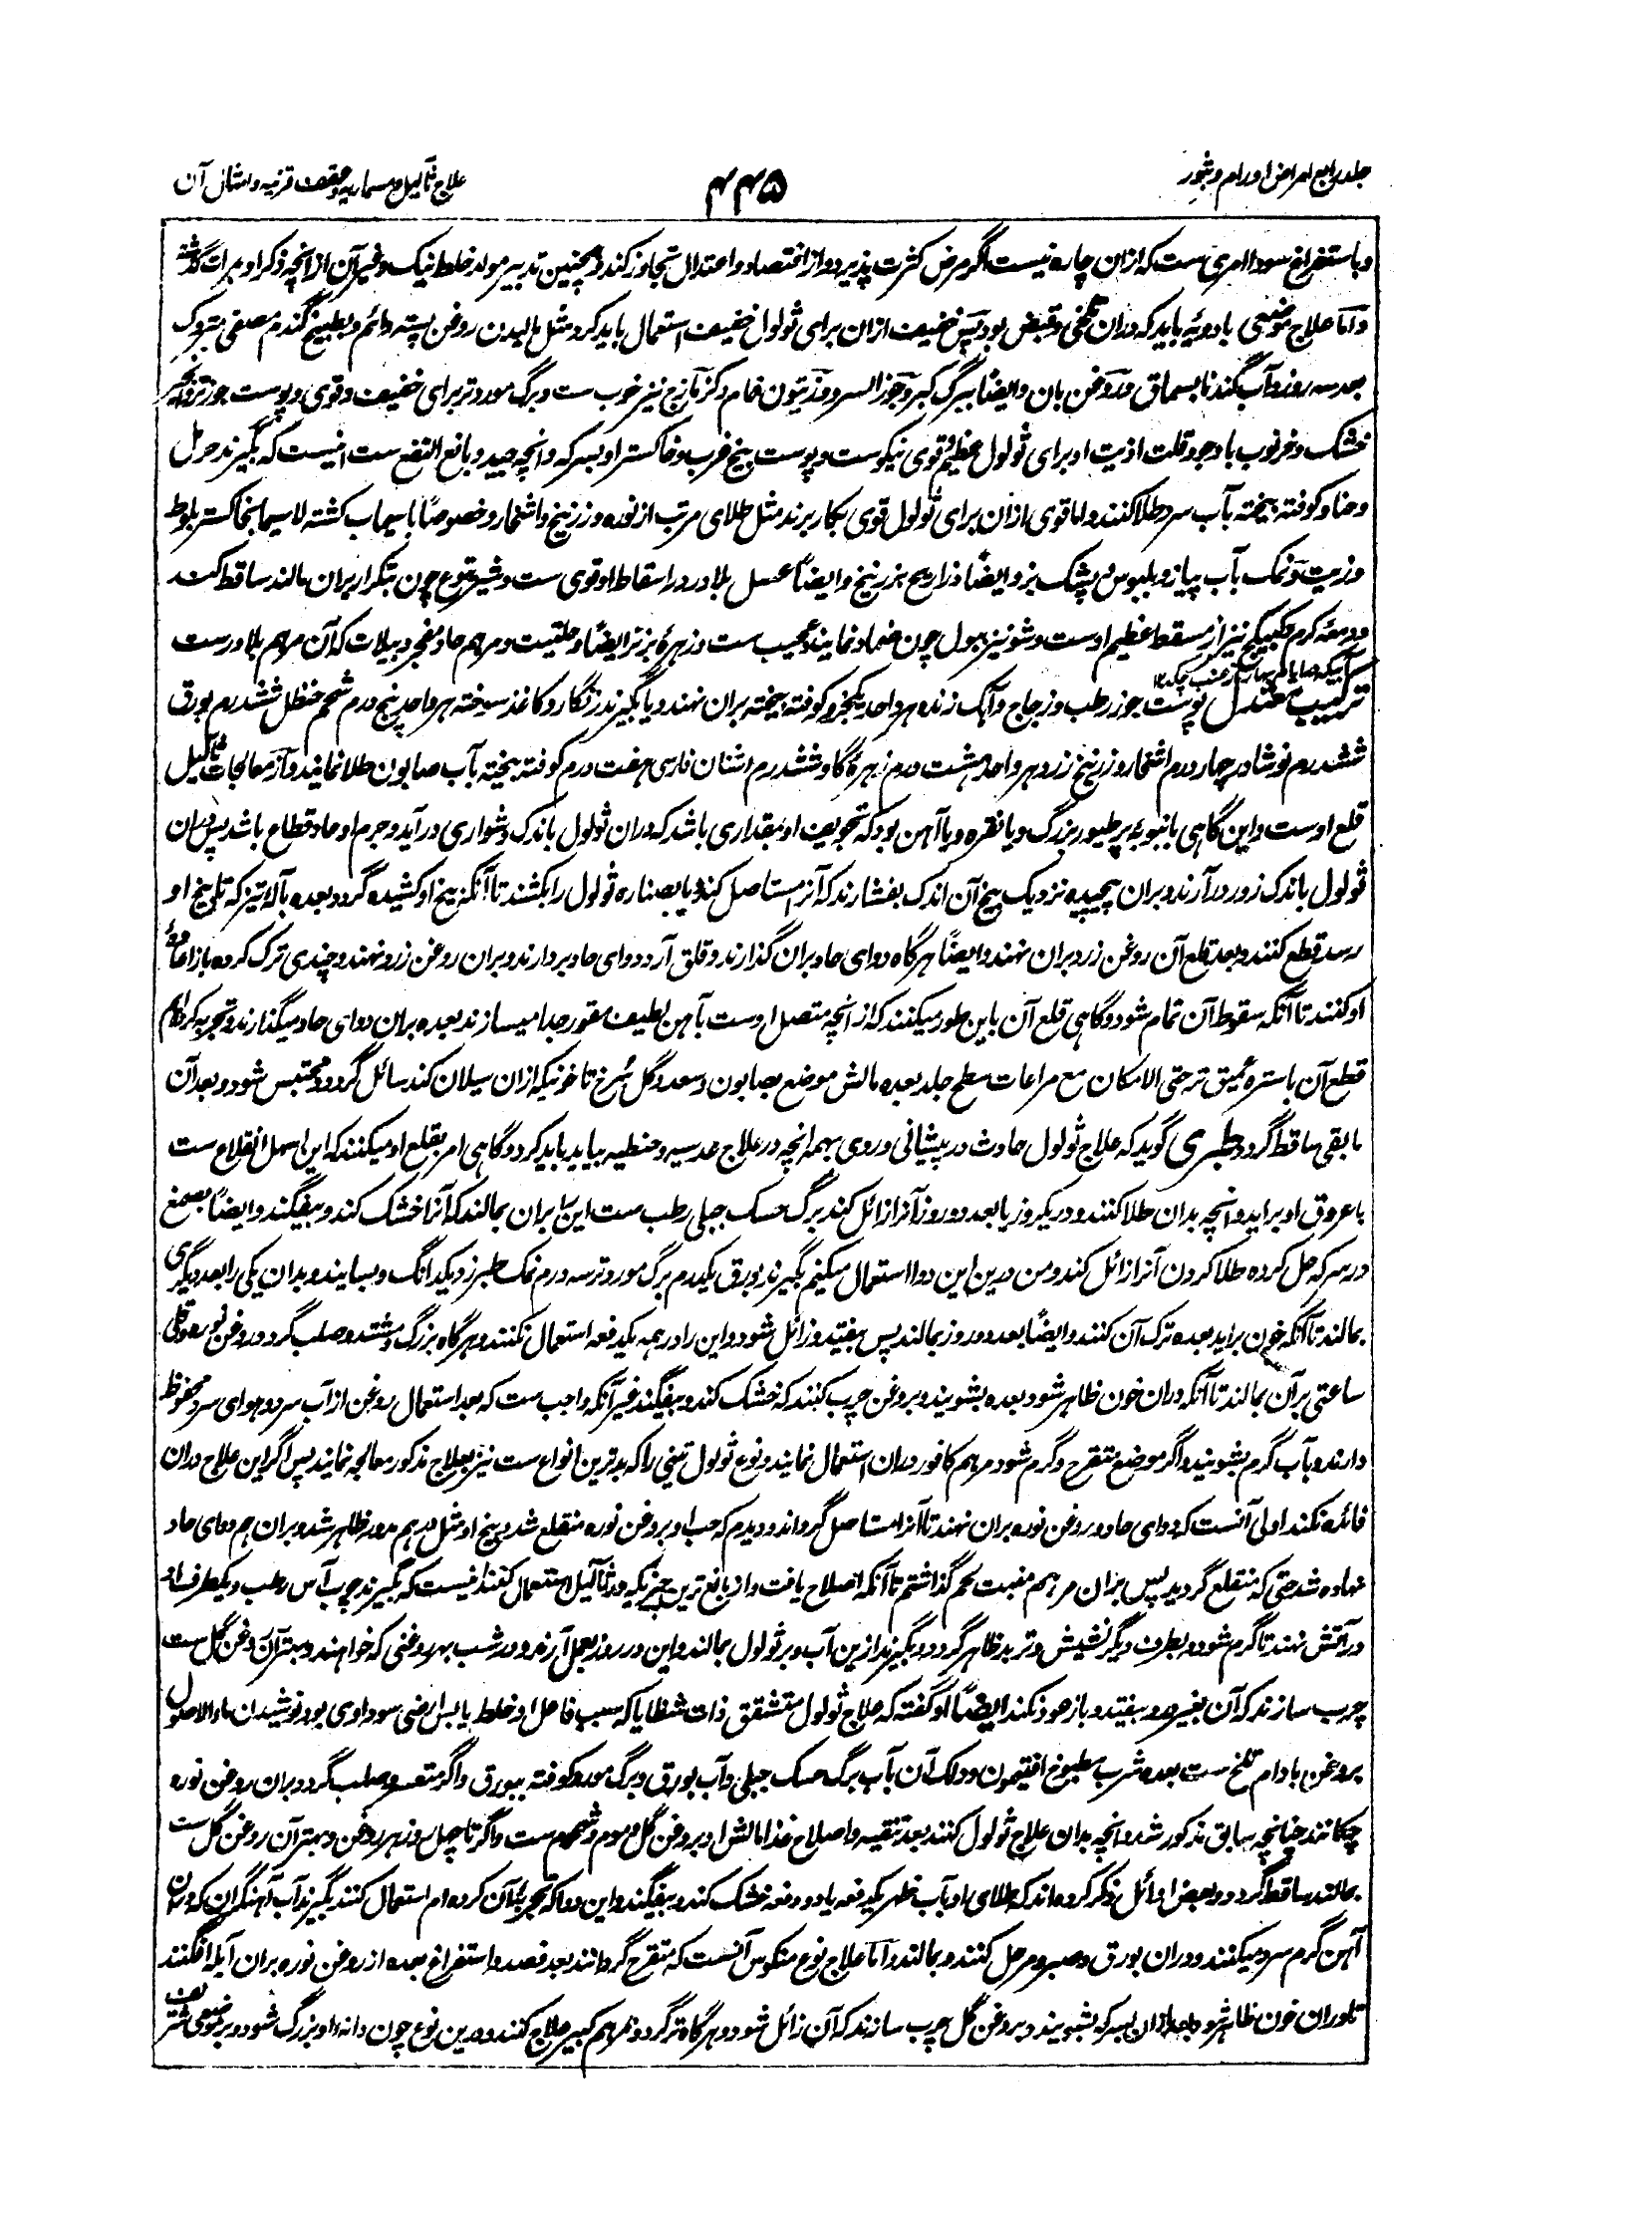 جلد رابع امراض اورام و بثور
۵۴۴
علاج ثآلیل و مسماریه و عقص قرنیه و امثال آن
و باستفراغ سودا امری ست که ازان چاره نیست اگر مرض کثرت پذیرد و از اقتصاد و اعتدال تجاوز کند و همچنین تدبیر مولد خلط نیک و غیر آن از انچه ذکر او مرات گذشته
و اما علاج موضعی بادویه باید که دران تلخی و قبض بود پس خفیف ازان برای ثولول خفیف استعمال باید کرد مثل مالیدن روغن پسته دائم و بطبیخ گندم مصفی متروک
بعد سه روز و آب گندنا بسماق و روغن بان و ایضاً ببرگ کبر و جوز السرو و زیتون خام و کزمازج نیز خوب ست و برگ مورد تر برای خفیف و قوی و پوست جوز تر و انجیر
خشک و خرنوب با وجود قلت اذیت او برای ثولول عظیم و قوی نیکوست و پوست بیخ غرب و خاکستر او بسرکه و انچه جید و بالغ النفع ست اینست که بگیرند حرمل
و حنا و کوفته بیخته بآب سرد طلا کنند و اما قوی ازان برای ثولول قوی بکار برند مثل طلای مرتب از نوره و زرنیخ و اشخار و خصوصاً با سیماب کشته لاسیما بخاکستر بلوط
و زیت و نمک بآب پیاز و بلبوس و پشک بز و ایضاً ذراریح بزرنیخ و ایضاً عسل بلادر در اسقاط او قوی ست و شیر یتوع چون بتکرار بران مالند ساقط کند
و دمعه کرم و کبیکج نیز از مسقط عظیم اوست و شونیز ببول چون ضماد نمایند عجیب ست و زهره بز نر ایضاً و حلتیت و مرهم حاد مفجر دبیلات که آن مرهم بلادر ست
ترکیب معتدل پوست جوز رطب و زجاج و آهک زنده هر واحد یکجزو کوفته بیخته بران نهند و یا بگیرند زنگار و کاغذ سوخته هر واحد پنج درم شحم حنظل ششدرم بورق
ششدرم نوشادر چهار درم اشخار و زرنیخ زرد هر واحد هشت درم زهره گاو ششدرم اشنان فارسی هفت درم کوفته بیخته بآب صابون طلا نمایند و از معالجات ثآلیل
قلع اوست و این گاهی بانبوبه پر طیور بزرگ و یا نقره و یا آهن بود که تجویف او بمقداری باشد که دران ثولول باندک دشواری در آید و جرم او حاد قطاع باشد پس دران
ثولول باندک زور در آرند و بران پیچیده نزدیک بیخ آن اندک بفشارند که آنرا مستاصل کند و یا بصناره ثولول را بکشند تا آنکه بیخ او کشیده گردد بعده بآله تیز که تا بیخ او
رسد قطع کنند و بعد قلع آن روغن زرد بران نهند و ایضاً هرگاه دوای حاد بران گذارند و قلق آرد دوای حاد بردارند و بران روغن زرد نهند و چندی ترک کرده باز اعاده
او کنند تا آنکه سقوط آن تمام شود و گاهی قلع آن باین طور میکنند که از انچه متصل اوست بآهن لطیف مقور جدا میسازند بعده بران دوای حاد میگذارند و تجربه کرده ام
قطع آن باستره عمیق تر حتی الامکان مع مراعات سطح جلد بعده مالش موضع بصابون و سعد و گل سرخ تا خونیکه ازان سیلان کند سائل گردد و محتبس شود و بعد آن
مابقی ساقط گردد طبری گوید که علاج ثولول حادث در پیشانی و روی بهمه انچه در علاج عدسیه و حنطیه بیاید باید کرد و گاهی امر بقلع او میکنند که این سهل انقلاع ست
با عروق او براید و انچه بدان طلا کنند و در یکروز یا بعد دو روز آنرا زائل کند برگ حسک جبلی رطب ست این را بران بمالند که آنرا خشک کند و بیفگند و ایضاً بصمغ
در سرکه حل کرده طلا کردن آنرا زائل کند و من درین این دوا استعمال میکنم بگیرند بورق یکدرم برگ مورد تر سه درم نمک طبرزد یکدانگ و بسایند و بدان یکی را بعد دیگری
بمالند تا آنکه خون براید بعده ترک آن کنند و ایضاً بعد دو روز بمالند پس بیفتد و زائل شود و این را در همه یکدفعه استعمال نکنند و هرگاه بزرگ و مشتد و صلب گردد روغن نوره
ساعتی بر آن بمالند تا آنکه دران خون ظاهر شود بعده بشویند و بروغن چرب کنند که خشک کند و بیفگند غیر آنکه واجب ست که بعد استعمال روغن از آب سرد و هوای سرد محفوظ
دارند و بآب گرم بشویند و اگر موضع متقرح و گرم شود مرهم کافور دران استعمال نمایند و نوع ثولول تینی را که بدترین انواع ست نیز بعلاج مذکور معالجه نمایند پس اگر این علاج دران
فائده نکند اولی آنست که دوای حاد و روغن نوره بران نهند تا آنرا مستاصل گرداند و دیدم که حب او بروغن نوره منقلع شد و بیخ او مثل درهم مدور ظاهر شد و بران هم دوای حاد
نهاده شد حتی که منقلع گردید پس بران مرهم منبت لحم گذاشتم تا آنکه اصلاح یافت و از نافع ترین چیزیکه در ثآلیل استعمال کنند اینست که بگیرند چوب آس رطب و یکطرف او
در آتش نهند تا گرم شود و بطرف دیگر نشیش و تر ید ظاهر گردد و بگیرند ازین آب و بر ثولول بمالند و این در روز بعمل آرند و در شب بهر روغنی که خواهند و بهتر آن روغن گل ست
چرب سازند که آن بغیر درد بیفتد و باز عود نکند ایضاً او گفته که علاج ثولول متشقق ذات شظایا که سبب فاعل او خلط یابس ارضی سوداوی بود نوشیدن ماء الاصول
بروغن بادام تلخ ست بعده شرب مطبوخ افتیمون و دلک آن بآب برگ حسک جبلی و آب بورق و برگ مورد کوفته ببورق و اگر متعسر و صلب گردد بران روغن نوره
چکانند چنانچه سابق مذکور شد و انچه بدان علاج ثولول کنند بعد تنقیه و اصلاح غذا مالش او بروغن گل و موم و شحوم ست و اگر تا چهل روز بهر روغن و بهتر آن روغن گل ست
بمالند ساقط گردد و بعض اوائل ذکر کرده اند که طلای او بآب ظهر یکدفعه یا دو دفعه خشک کند و بیفگند و این دوا که تجربه آن کرده ام استعمال کنند بگیرند آب آهنگران که دران
آهن گرم سرد میکنند و دران بورق و صبر و مر حل کنند و بمالند و اما علاج نوع منکوس آنست که متقرح گردانند بعد فصد و استفراغ بعده از روغن نوره بران آبله افگنند
تا دران خون ظاهر شود بعد ازان بسرکه بشویند و بروغن گل چرب سازند که آن زائل شود و هرگاه تر گردد بمرهم کبیر علاج کنند و درین نوع چون دانه او بزرگ شود و بر موضعی